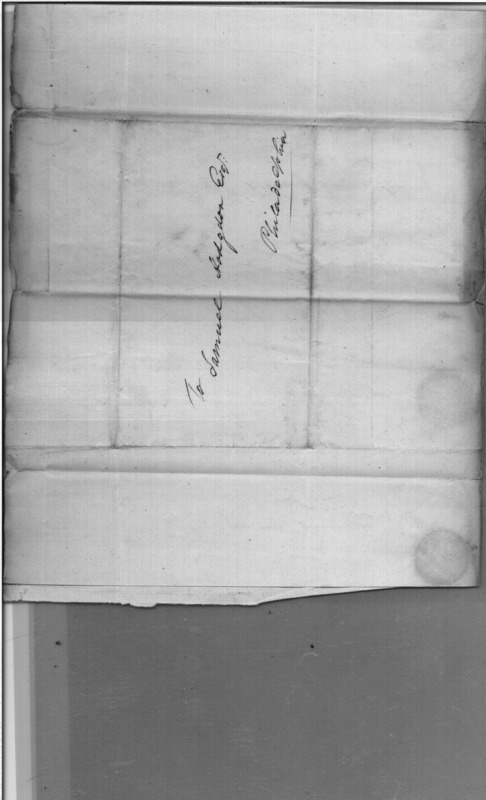 To Samuel Hodgdon Esqr.
Philadelphia